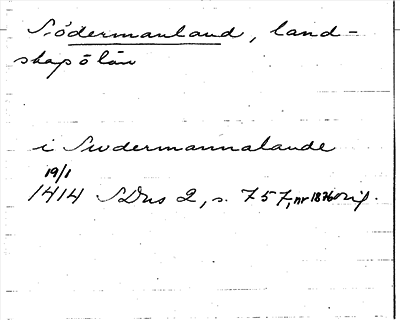 Södermanland, land-
skap o län
i Swdermannalande
19/1
1414 SDns 2, s. 757, nr 1836 orig.